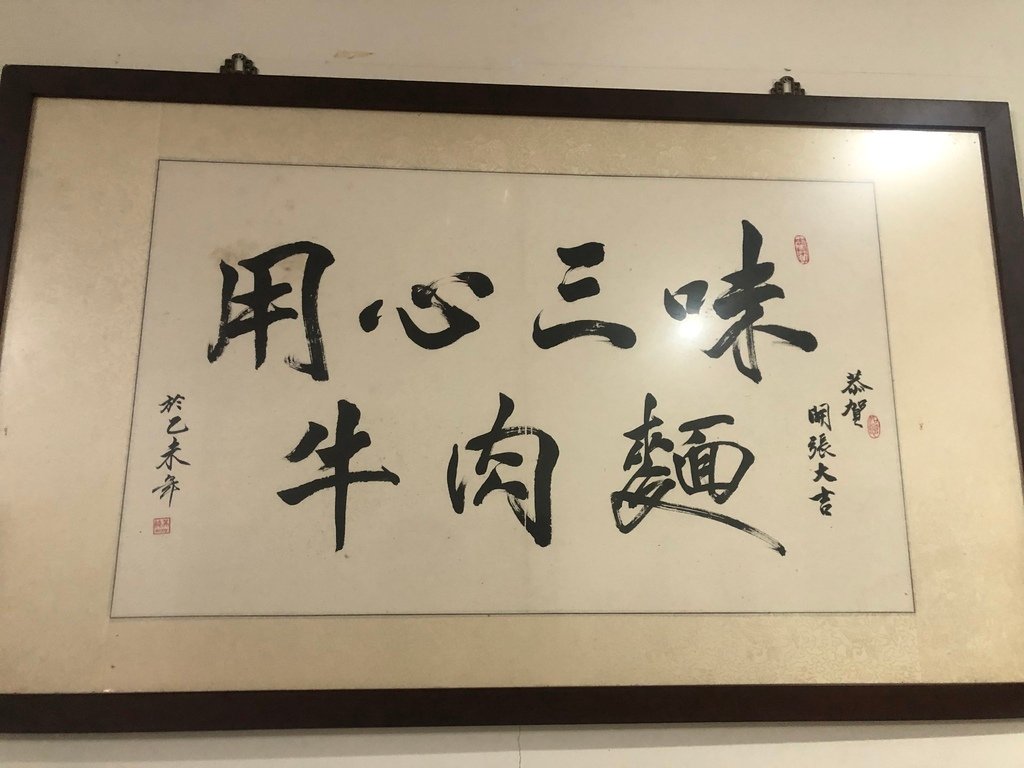 用心三味
牛肉麵
恭賀
開張大吉
於乙未年